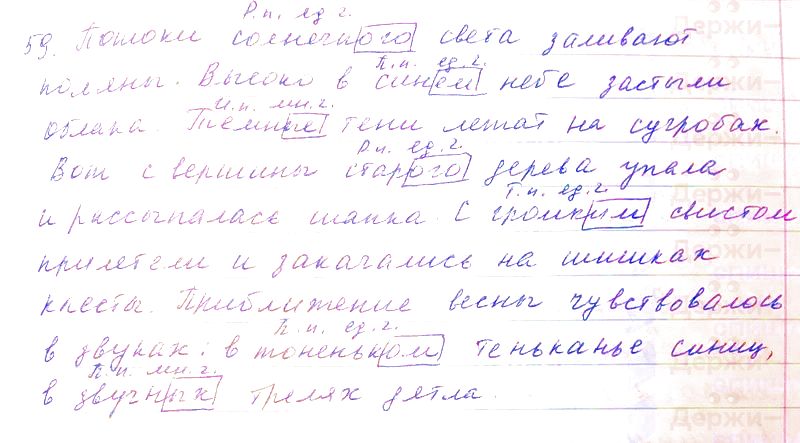 Р.п. ед.г.
59. Потоки солнечного света заливают
П.п. ед.г.
поляны. Высоко в синем небе застыли
И.п. мн.г.
облака. Тёмные тени лежат на сугробах.
Р.п. ед.г.
Вот с вершины старого дерева упала
Т.п. ед.г.
и рассыпалась шапка. С громким свистом
прилетели и закачались на шишках
клесты. Приближение весны чувствовалось
П.п. ед.г.
в звуках: в тоненьком теньканье синиц,
П.п. мн.г.
в звучных трелях дятла.
Держи—
Держи—
Держи—
Держи—